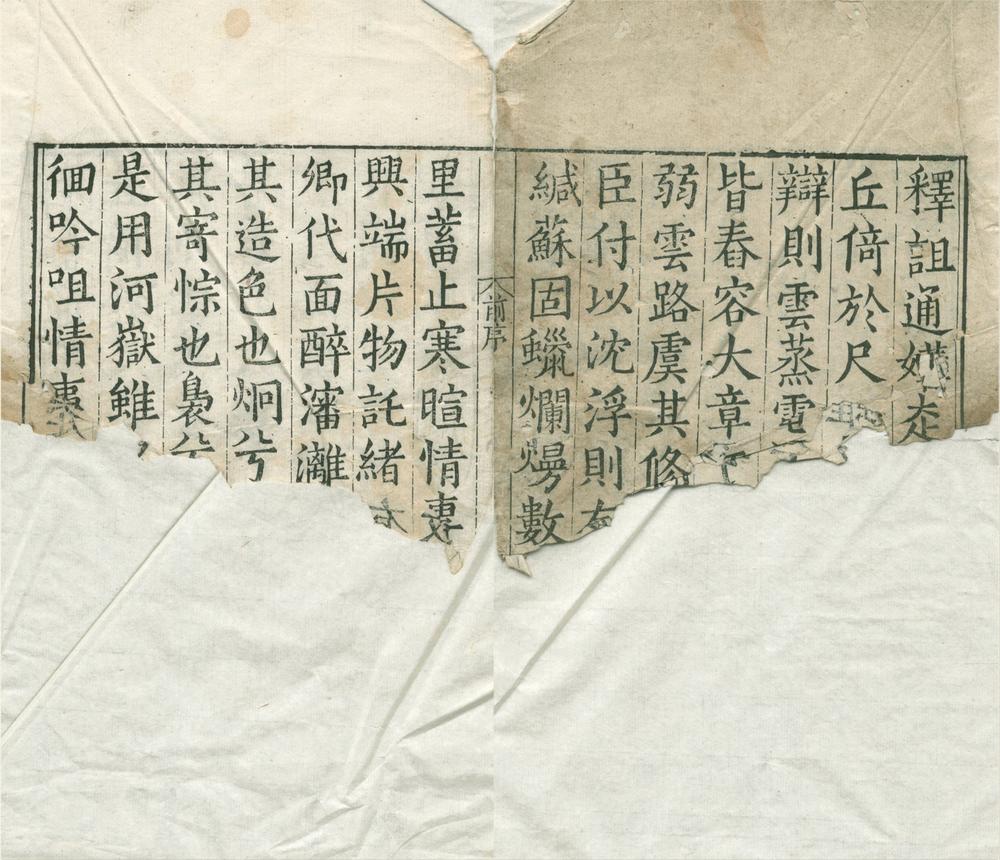 釋詛通媾
丘倚於尺
辯則雲蒸電
皆舂容大章
弱雲路虞其修
臣付以沈浮則
緘蘇固蠟爛熳數
前序
里蓄止寒暄情
興端片物託緒
卿代面醉瀋灕
其造色也炯兮
其寄悰也裊兮
是用河嶽雖
徊吟咀情